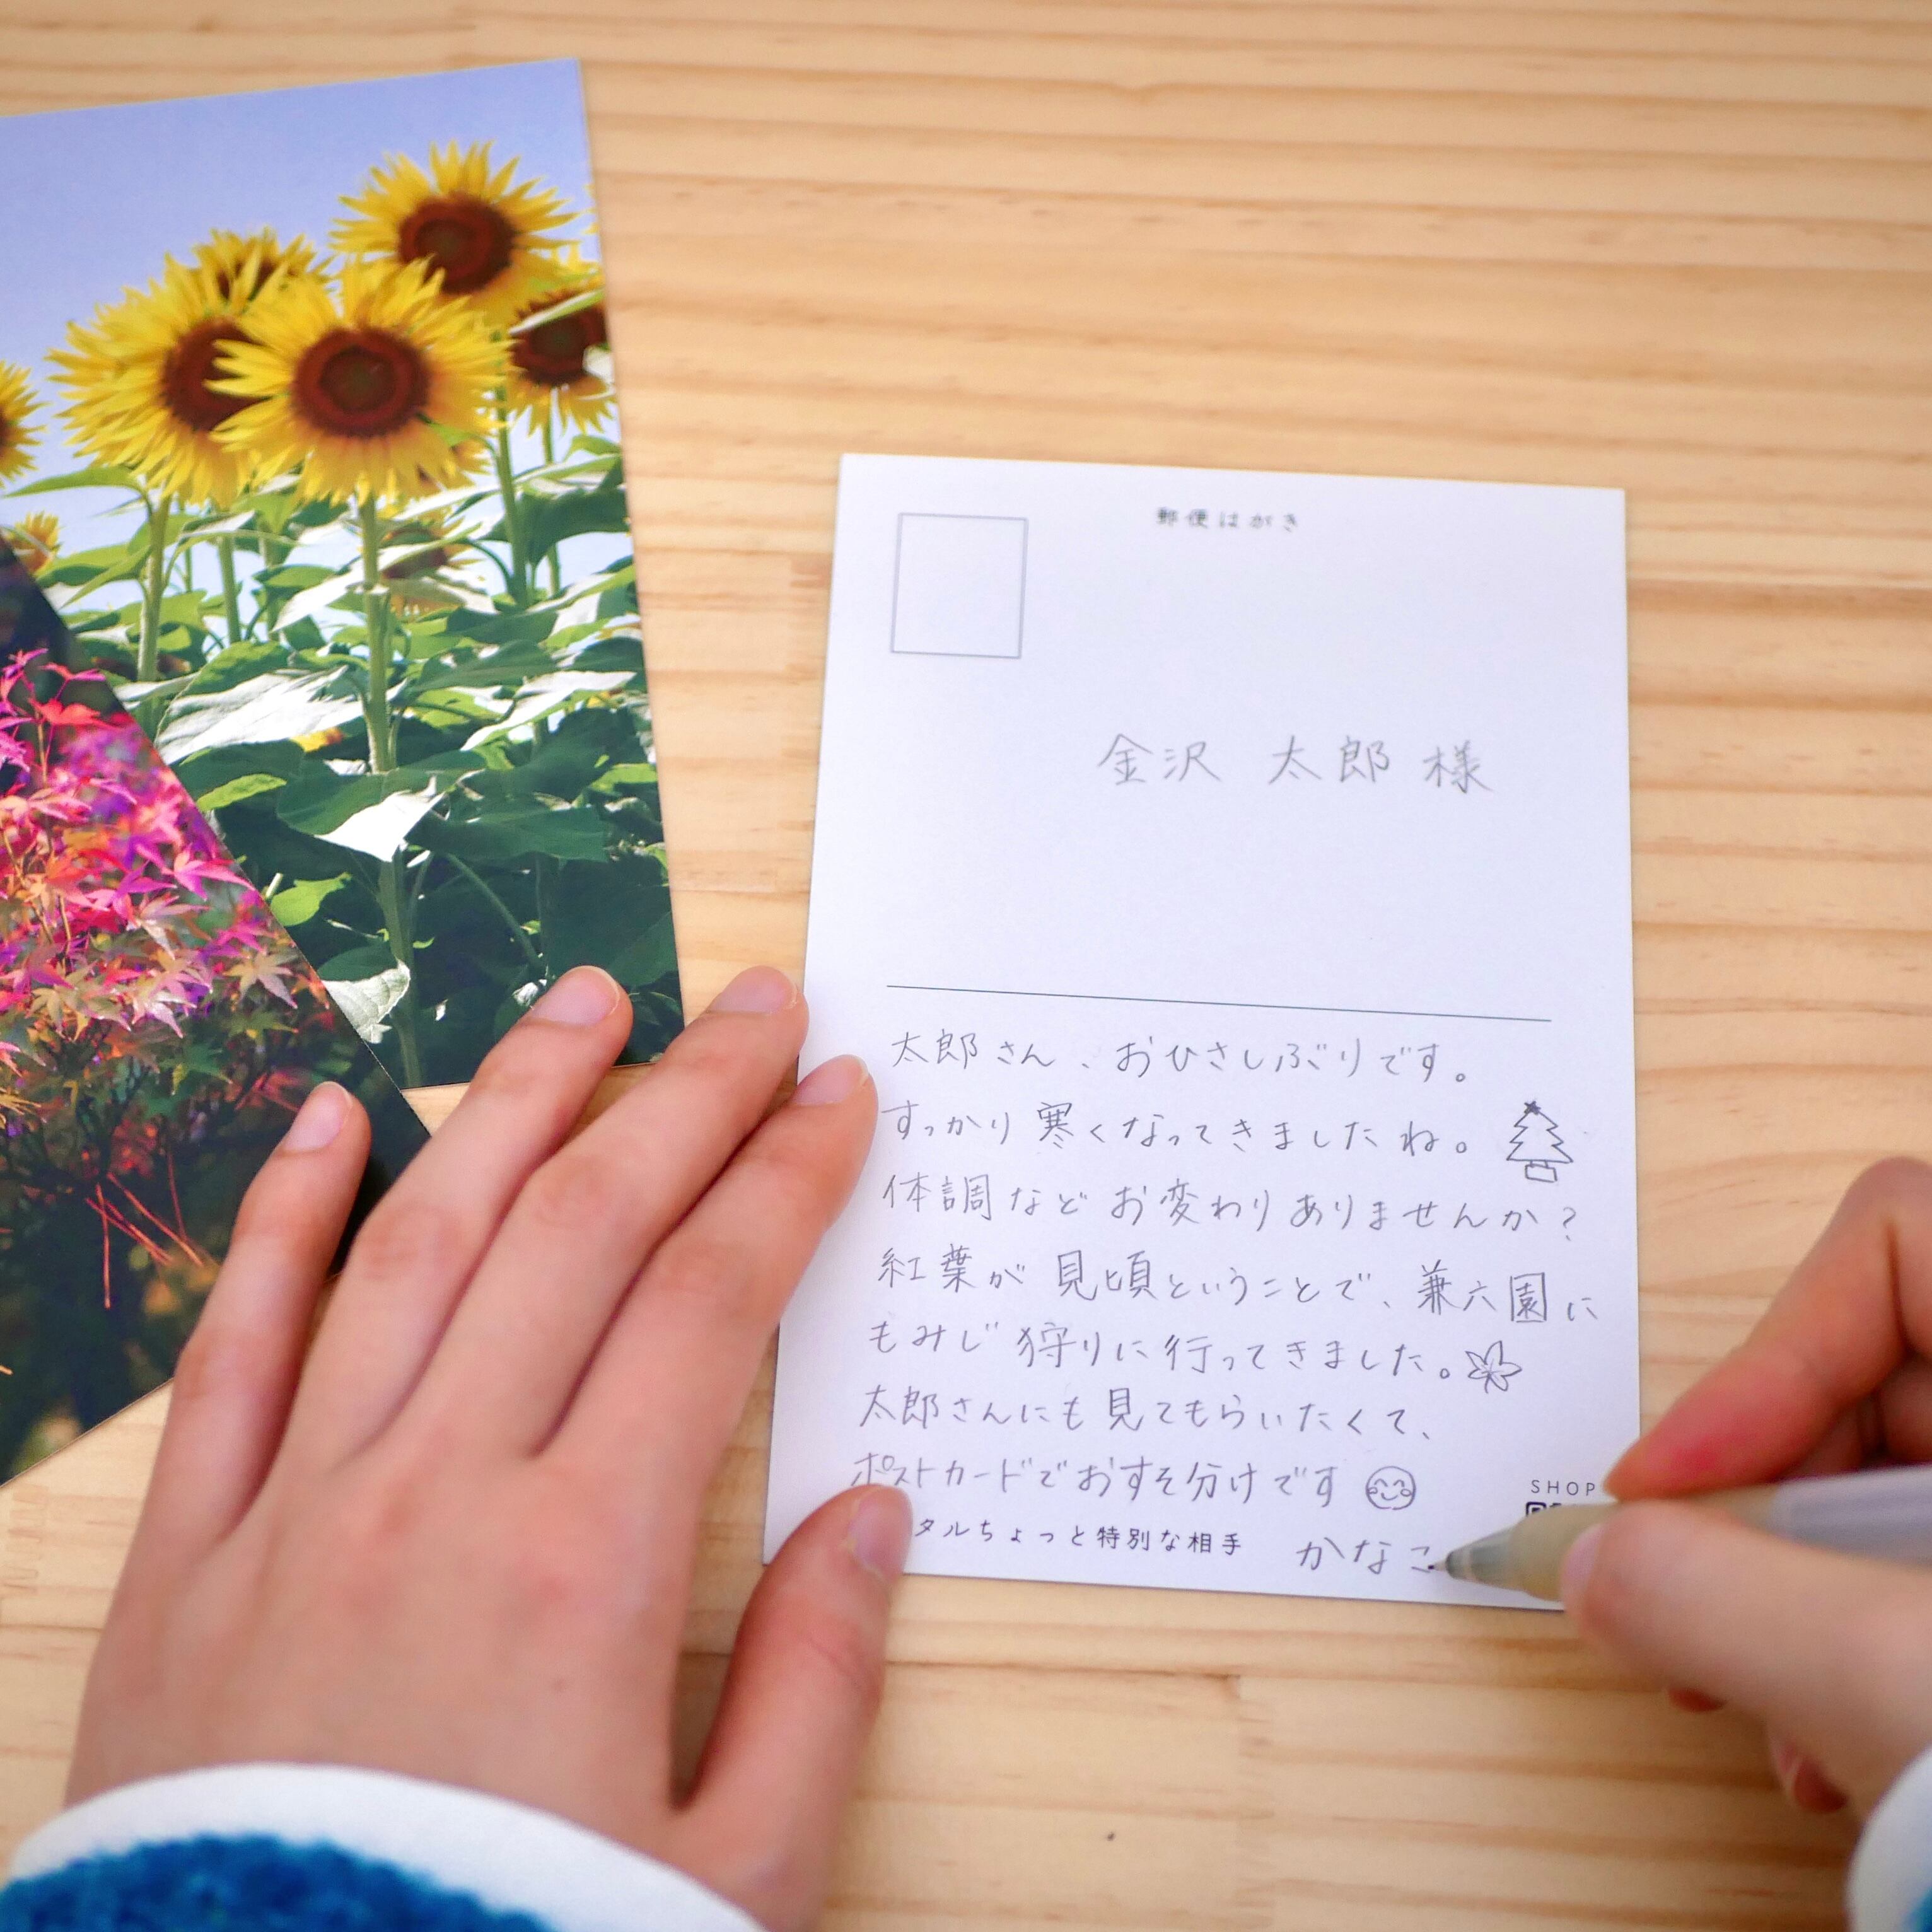 郵便はがき
金沢 太郎 様
太郎さん、おひさしぶりです。
すっかり寒くなってきましたね。
体調などお変わりありませんか?
紅葉が見頃ということで、兼六園に
もみじ狩りに行ってきました。
太郎さんにも見てもらいたくて、
ポストカードでおすそ分けです
SHOP
タルちょっと特別な相手
かなこ